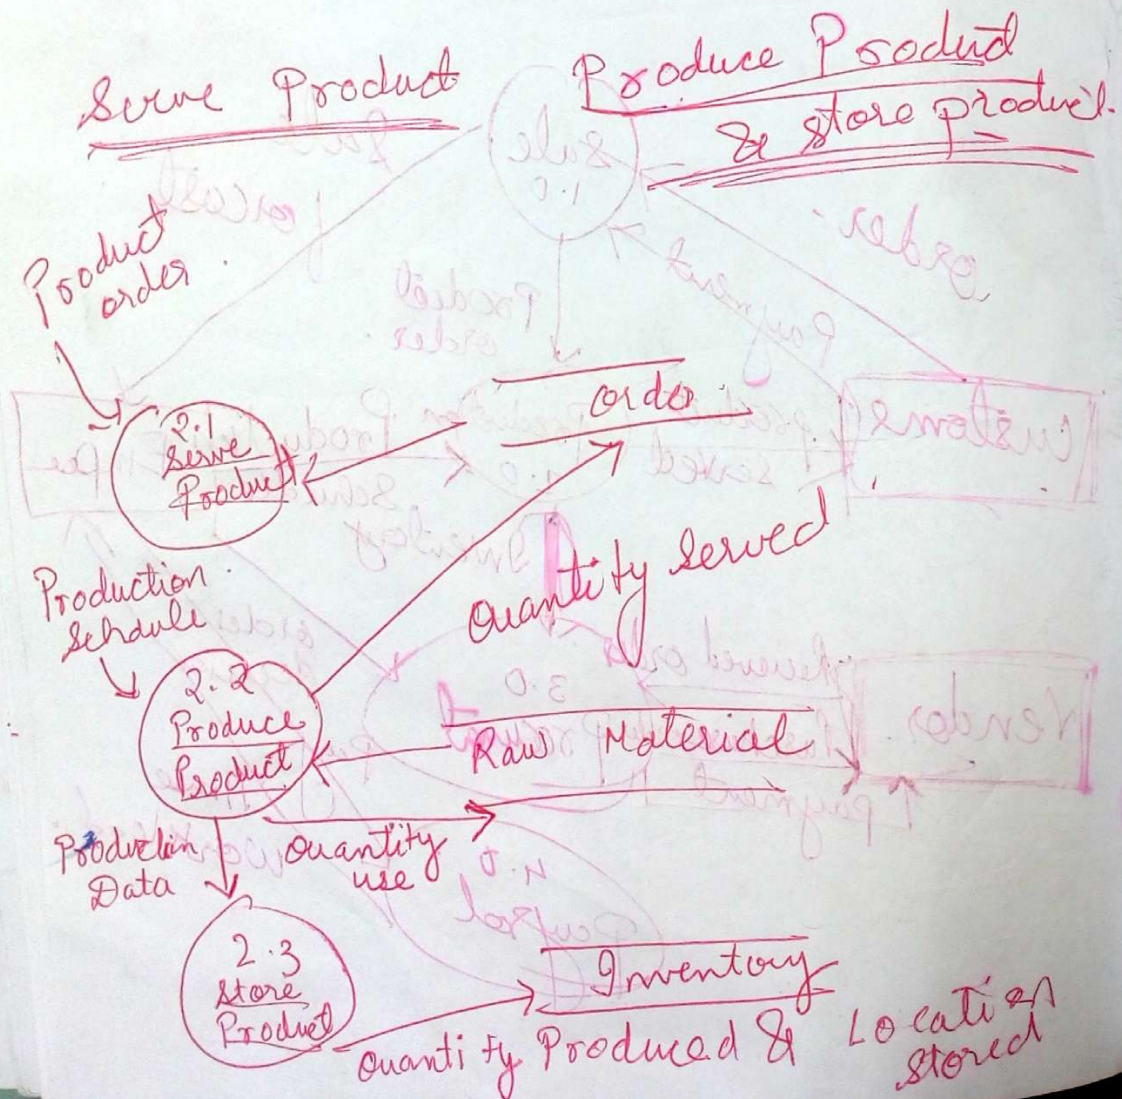 Serve Product
Produce Product
& store product.
Product
order
order
2.1
Serve
Product
Quantity served
Production
Schdule
2.2
Produce
Product
Raw Material
Production
Data
Quantity
use
2.3
Store
Product
Inventory
Quantity Produced & Location
stored